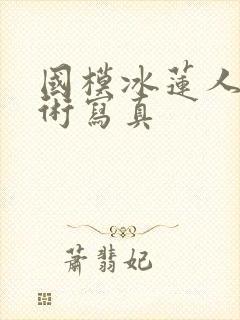 國模冰蓮人
術寫真
蕭翡妃